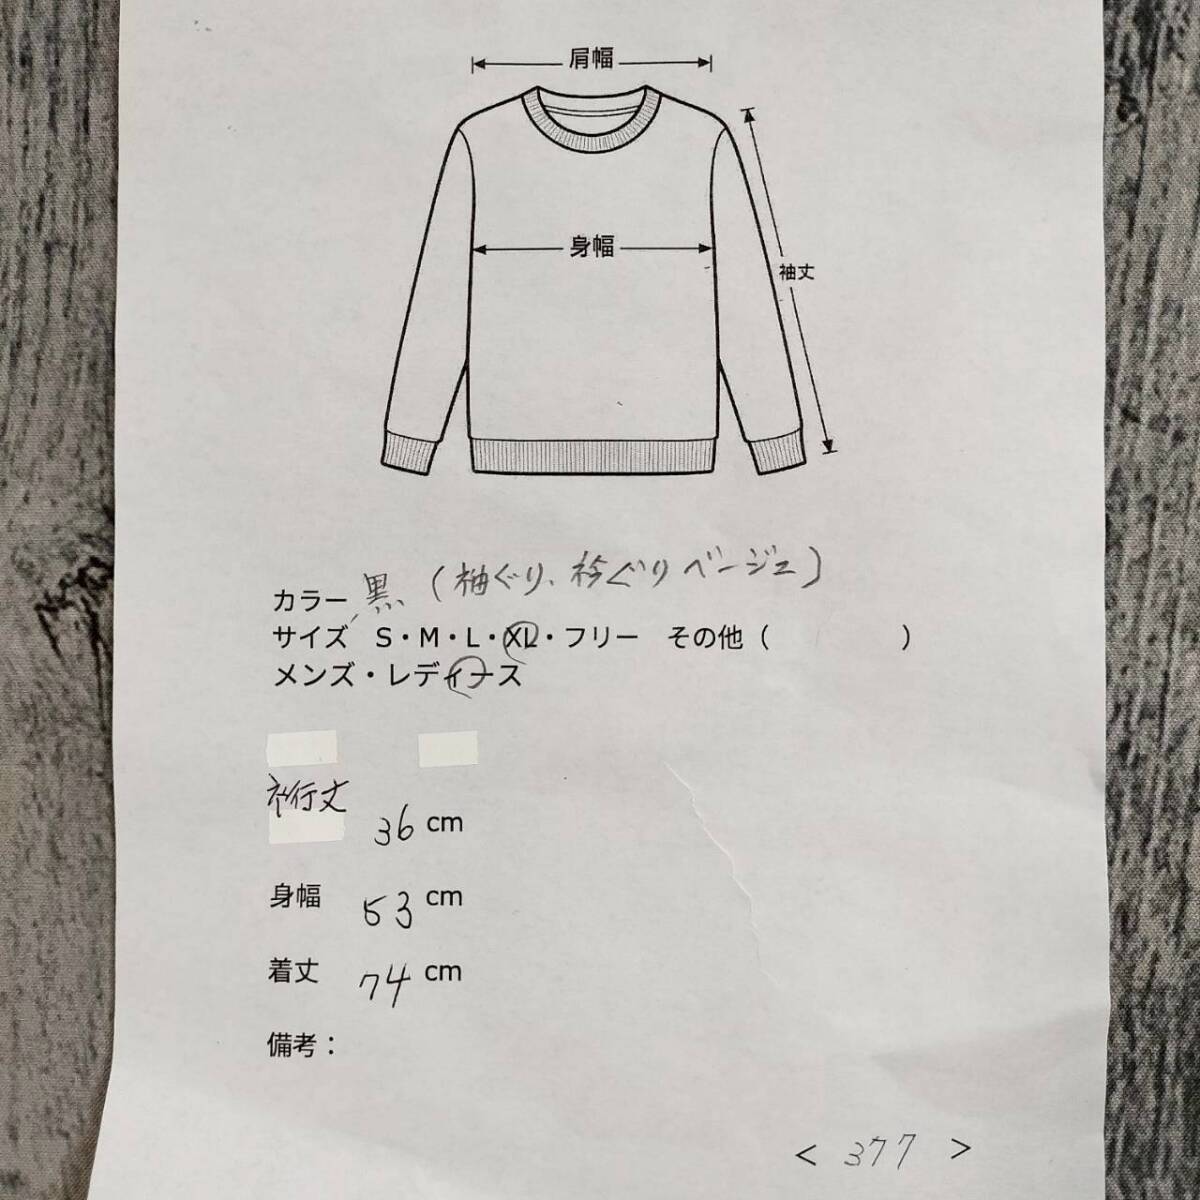 肩幅
身幅
袖丈
カラー 黒(袖ぐり、衿ぐりベージュ)
サイズ S・M・L・XL・フリー その他( )
メンズ・レディース
裄丈 36 cm
身幅 53 cm
着丈 74 cm
備考:
< 377 >